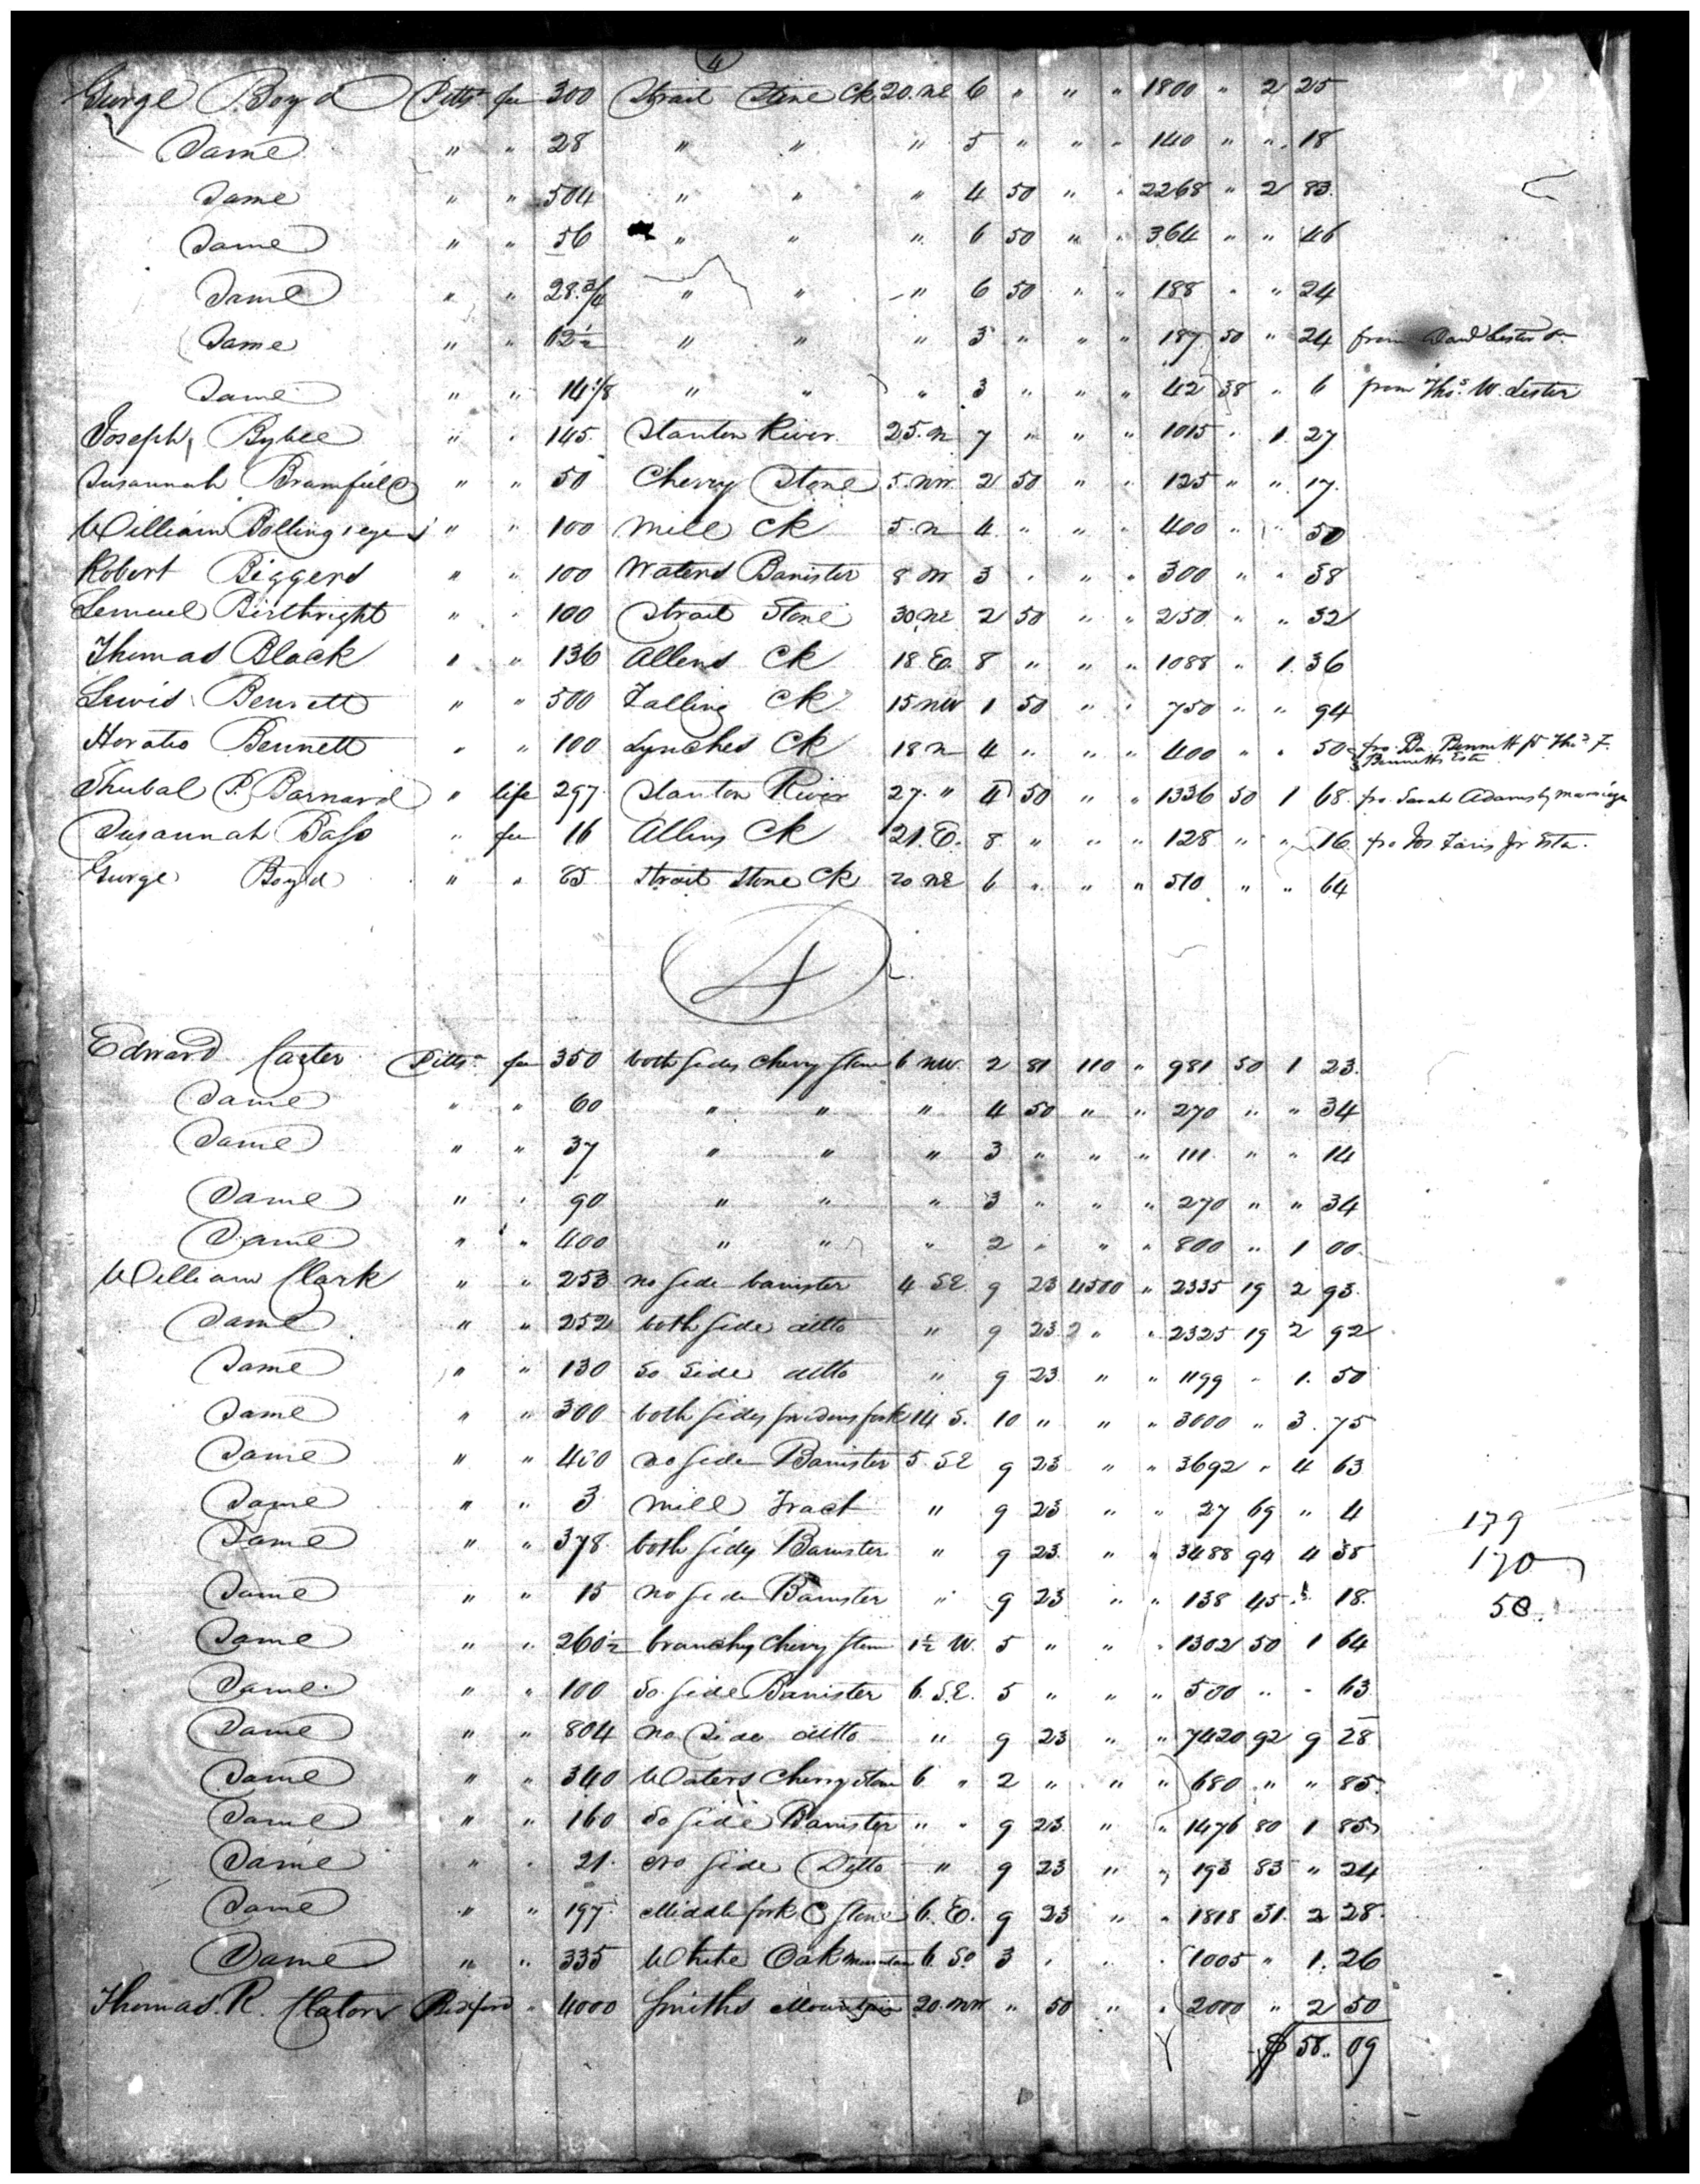 4
George Boyd Pittsa fee 300 Strait Stone Ck 20. NE 6 " " " 1800 " 2 25
Same " " 28 " " " 5 " " " 140 " " 18
Same " " 504 " " " 4 50 " " 2268 " 2 83
Same " " 56 " " " 6 50 " " 364 " " 46
Same " " 28 3/4 " " " 6 50 " " 188 " " 24
Same " " 62½ " " " 3 " " " 187 50 " 24 from Lester
Same " " 14 1/8 " " " 3 " " " 42 38 " 6 from Thos. W. Lester
Joseph Bybee " " 145 Stanton River 25. N 7 " " " 1015 " 1 27
Susannah Bramfield " " 50 Cherry Stone 5. NW 2 50 " " 125 " " 17
William Bolling " " 100 Mill Ck 5. N 4 " " " 400 " " 50
Robert Biggers " " 100 Waters Banister 8 W 3 " " " 300 " " 38
Lemuel Birthright " " 100 Strait Stone 30 NE 2 50 " " 250 " " 32
Thomas Black " " 136 Allens Ck 18 E. 8 " " " 1088 " 1. 36
Lewis Bennett " " 500 Falling Ck 15 NW 1 50 " " 750 " " 94
Horatio Bennett " " 100 Lynches Ck 18 N 4 " " " 400 " " 50 fro. Bennett Thos. F. Bennetts Esta
Shubal P. Barnard " life 297 Stanton River 27. " 4 50 " " 1336 50 1 68 fro. Sarah Adams by marriage
Susannah Bass " fee 16 Allins Ck 21. E. 8 " " " 128 " " 16 fro Jos Faris Jr Esta.
George Boyd " " 85 Strait Stone Ck 20 NE 6 " " " 510 " " 64
4
Edward Carter Pittsa fee 350 both sides Cherry stone 6 NW 2 81 110 " 981 50 1 23
Same " " 60 " " " 4 50 " " 270 " " 34
Same " " 37 " " " 3 " " " 111 " " 14
Same " " 90 " " " 3 " " " 270 " " 34
Same " " 400 " " " 2 " " " 800 " 1 00
William Clark " " 253 no side banister 4 SE 9 23 4500 " 2335 19 2 93
Same " " 252 both side ditto " 9 23 2 " " 2325 19 2 92
Same " " 130 So side ditto " 9 23 " " 1199 " 1. 50
Same " " 300 both sides fork 14 S. 10 " " " 3000 " 3. 75
Same " " 400 no side Banister 5. SE 9 23 " " 3692 " 4 63
Same " " 3 Mill Tract " 9 23 " " 27 69 " 4 179
Same " " 378 both sides Banister " 9 23 " " 3488 94 4 38 170
Same " " 15 no side Banister " 9 23 " " 138 45 " 18 50
Same " " 260½ branches Cherry stone 1½ W. 5 " " " 1302 50 1 64
Same " " 100 So. side Banister 6. SE. 5 " " " 500 " " 63
Same " " 804 no side ditto " 9 23 " " 7420 92 9 28
Same " " 340 Waters Cherry stone 6 " 2 " " " 680 " " 85
Same " " 160 So side Banister " " 9 23 " " 1476 80 1 85
Same " " 21 no side Ditto " 9 23 " " 193 83 " 24
Same " " 197 Middle fork C Stone 6. E. 9 23 " " 1818 31 2 28
Same " " 335 White Oak mountain 6 So 3 " " " 1005 " 1. 26
Thomas R. Claton Bedford " 4000 Smiths Mountain 20. NW " 50 " " 2000 " 2 50
$ 58.. 09